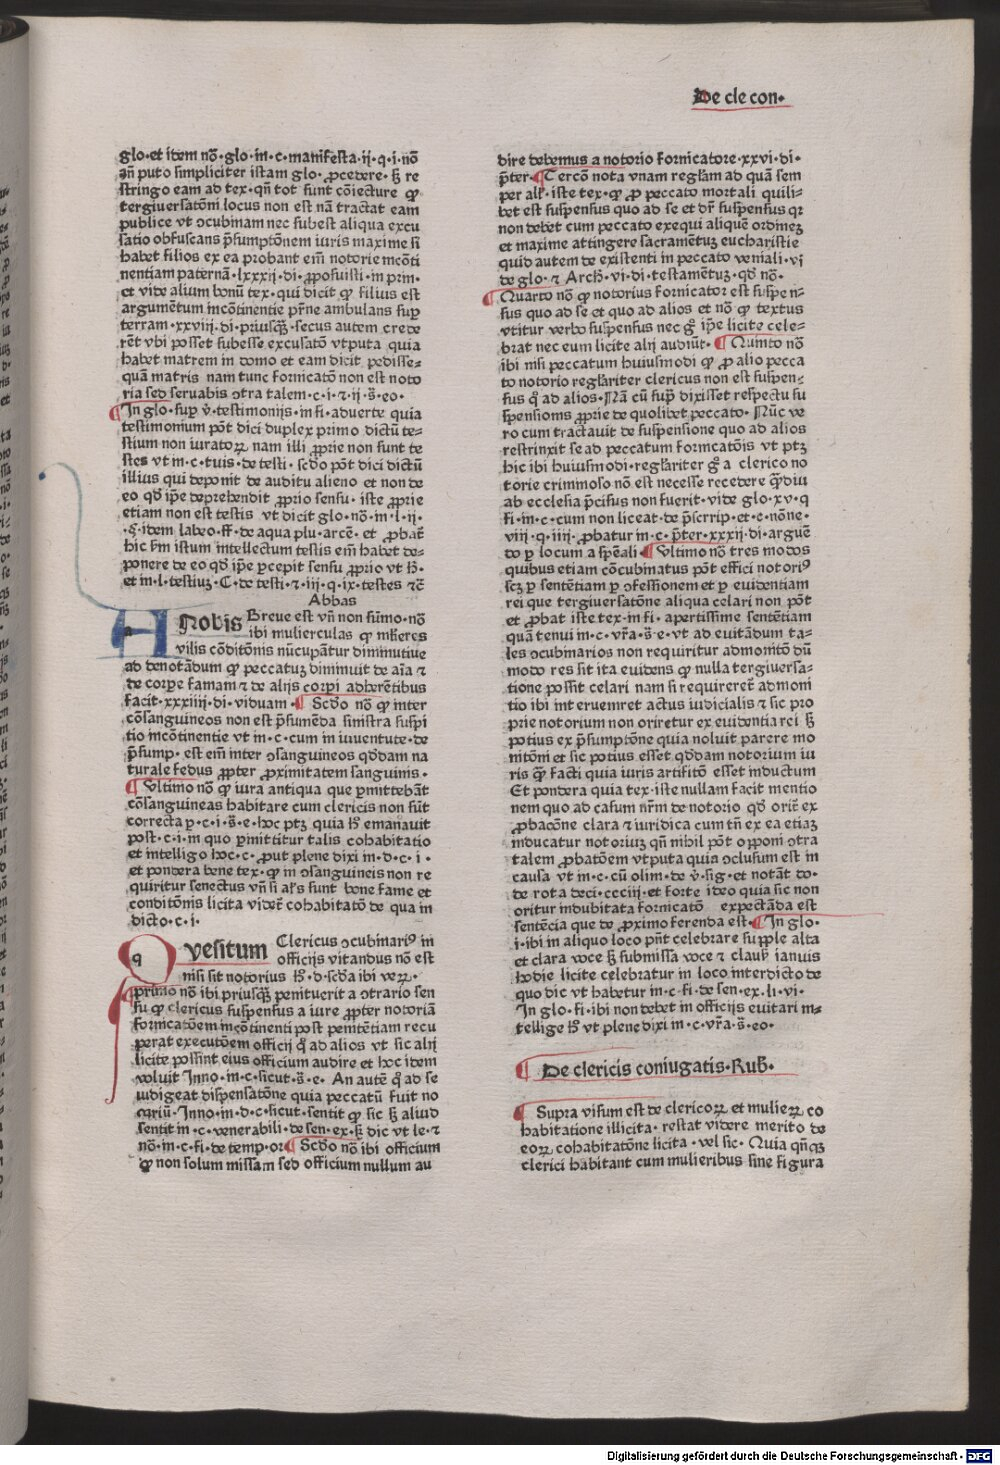 De cle con·
glo·et idem nō·glo·in·c·manifesta·ij·q·i·nō
puto simpliciter istam glo·ꝓcedere·sꝫ re
stringo eam ad tex·qn̄ tot sunt cōiecture ꝙ
tergiuersatōni locus non est nā tractat eam
publice vt ↄcubinam nec subest aliqua excu
satio obfuscans p̄sumptōnem iuris maxime si
habet filios ex ea probant em̄ notorie incōti
nentiam paternā·lxxxij·di·ꝓposuisti·in prin·
et vide alium bonū tex·qui dicit ꝙ filius est
argumētum incōtinentie pr̄ne ambulans suꝑ
terram·xxviij·di·priusqꝫ·secus autem crede
rēt vbi posset subesse excusatō vtputa quia
habet matrem in domo et eam dicit pedisse⸗
quā matris nam tunc fornicatō non est noto
ria sed seruabis ↄtra talem·c·i·et·ij·s̄·eo·
In glo·suꝑ v̄·testimonijs·in fi·aduerte quia
testimonium pōt dici duplex primo dictū te⸗
stium non iuratoꝝ nam illi ꝓprie non sunt te
stes vt in·c·tuis·de testi·scd̄o pōt dici dictū
illius qui deponit de auditu alieno et non de
eo qd̄ ip̄e deprehendit ꝓprio sensu·iste ꝓprie
etiam non est testis vt dicit glo·nō·in·l·ij·
·§·idem labeo·ff·de aqua plu·arcē·et ꝓbat᷑
hic s̄m istum intellectum testis em̄ habet de⸗
ponere de eo qd̄ ip̄e ꝑcepit sensu ꝓprio vt hꝫ·
et in·l·testiuꝫ·C·de testi·et·iij·q·ix·testes ⁊c̄
Abbas
Nobis Breue est vn̄ non sūmo·nō
ibi mulierculas ꝙ mlieres
vilis cōditōnis nūcupātur diminutiue
ad denotādum ꝙ peccatuꝫ diminuit de aīa ⁊
de corpe famam ⁊ de alijs corpi adherētibus
facit·xxxiiij·di·viduam·Scd̄o nō ꝙ inter
cōsanguineos non est p̄sumēda sinistra suspi
tio incōtinentie vt in·c·cum in iuuentute·de
p̄sump·est em̄ inter ↄsanguineos qd̄dam na
turale fedus ꝓpter ꝓximitatem sanguinis·
Vltimo nō ꝙ iura antiqua que ꝑmittebāt
cōsanguineas habitare cum clericis non sūt
correcta ꝑ·c·i·s̄·e·hoc ptꝫ quia hꝫ emanauit
post·c·i·in quo ꝑmittitur talis cohabitatio
et intelligo hoc·c·ꝓut plene dixi in·d·c·i·
et pondera bene tex·ꝙ in ↄsanguineis non re
quiritur senectus vn̄ si al̄s sunt bone fame et
conditōnis licita videt᷑ cohabitatō de qua in
dicto·c·i·
Quesitum Clericus ↄcubinariꝰ in
officijs vitandus nō est
nisi sit notorius hꝫ·d·scd̄a ibi veꝝ·
primo nō ibi priusqꝫ penituerit a ↄtrario sen
su ꝙ clericus suspensus a iure ꝓpter notoriā
fornicatōem incōtinenti post penitētiam recu
perat executōem officij qͦ ad alios vt sic alij
licite possint eius officium audire et hoc idem
voluit Inno·in·c·sicut·s̄·e·An autē qͦ ad se
indigeat dispensatōne quia peccatū fuit no
toriū·Inno·in·d·c·sicut·sentit ꝙ sic sꝫ aliud
sentit in·c·venerabili·de sen·ex·sꝫ dic vt le·⁊
nō·in·c·fi·de temp·or·Scd̄o nō ibi officium
ꝙ non solum missam sed officium nullum au
dire debemus a notorio fornicatore·xxvi·di·
p̄ter·Tercō nota vnam regl̄am ad quā sem
per all̄·iste tex·ꝙ ꝓ peccato mortali quili⸗
bet est suspensus quo ad se et dr̄ suspensus qr
non debet cum peccato exequi aliquē ordineꝫ
et maxime attingere sacramētuꝫ eucharistie
quid autem de existenti in peccato veniali·vi
de glo·⁊ Arch̄·vi·di·testamētuꝫ·qd̄ nō·
Quarto nō ꝙ notorius fornicator est suspen⸗
sus quo ad se et quo ad alios et nō ꝙ textus
vtitur verbo suspensus nec gͦ ip̄e licite cele⸗
brat nec eum licite alij audiūt·Quinto nō
ibi nisi peccatum huiusmodi ꝙ ꝓ alio pecca
to notorio regl̄ariter clericus non est suspen⸗
sus qͦ ad alios·Nā cū suꝑ dixisset respectu su
spensionis ꝓprie de quolibet peccato·Nūc ve
ro cum tractauit de suspensione quo ad alios
restrinxit se ad peccatum fornicatōis vt ptꝫ
hic ibi huiusmodi·regl̄ariter gͦ a clerico no
torie criminoso nō est necesse recedere qͣ̄diu
ab ecclesia p̄cisus non fuerit·vide glo·xv·q
fi·in·c·cum non liceat·de p̄scrip·et·c·nōne·
viij·q·iiij·ꝓbatur in·c·p̄ter·xxxij·di·arguē
do ꝑ locum a sp̄eali·Vltimo nō tres modos
quibus etiam cōcubinatus pōt effici notoriꝰ
scꝫ ꝑ sentētiam ꝑ ↄfessionem et ꝑ euidentiam
rei que tergiuersatōne aliqua celari non pōt
et ꝓbat iste tex·in fi·apertissime sentētiam
quā tenui in·c·vr̄a·s̄·e·vt ad euitādum ta⸗
les ↄcubinarios non requiritur admonitō dū
modo res sit ita euidens ꝙ nulla tergiuersa⸗
tione possit celari nam si requireret᷑ admoni
tio ibi interueniret actus iudicialis ⁊ sic pro
prie notorium non oriretur ex euidentia rei sꝫ
potius ex p̄sumptōne quia noluit parere mo
nitōni et sic potius esset qd̄dam notorium iu
ris qͣꝫ facti quia iuris artifitō esset inductum
Et pondera quia tex·iste nullam facit mentio
nem quo ad casum nr̄m de notorio qd̄ orit᷑ ex
ꝓbacōne clara ⁊ iuridica cum tn̄ ex ea etiaꝫ
inducatur notoriuꝫ qn̄ nihil pōt opponi ↄtra
talem ꝓbatōem vtputa quia ↄclusum est in
causa vt in·c·cū olim·de v̄·sig·et notāt do·
de rota deci·ccciij·et forte ideo quia sic non
oritur indubitata fornicatō expectāda est
sentēcia que de ꝓximo ferenda est·In glo·
i·ibi in aliquo loco pn̄t celebrare supple alta
et clara voce sꝫ submissa voce ⁊ clausꝭ ianuis
hodie licite celebratur in loco interdicto de
quo dic vt habetur in·c·fi·de sen·ex·li·vi·
In glo·fi·ibi non debet in officijs euitari in⸗
tellige hꝫ vt plene dixi in·c·vr̄a·s̄·eo·
De clericis coniugatis·Rub̄·
Supra visum est de clericoꝝ et mulieꝝ co
habitatione illicita·restat videre merito de
eoꝝ cohabitatōne licita·vel sic·Quia qn̄qꝫ
clerici habitant cum mulieribus sine figura
Digitalisierung gefördert durch die Deutsche Forschungsgemeinschaft - DFG